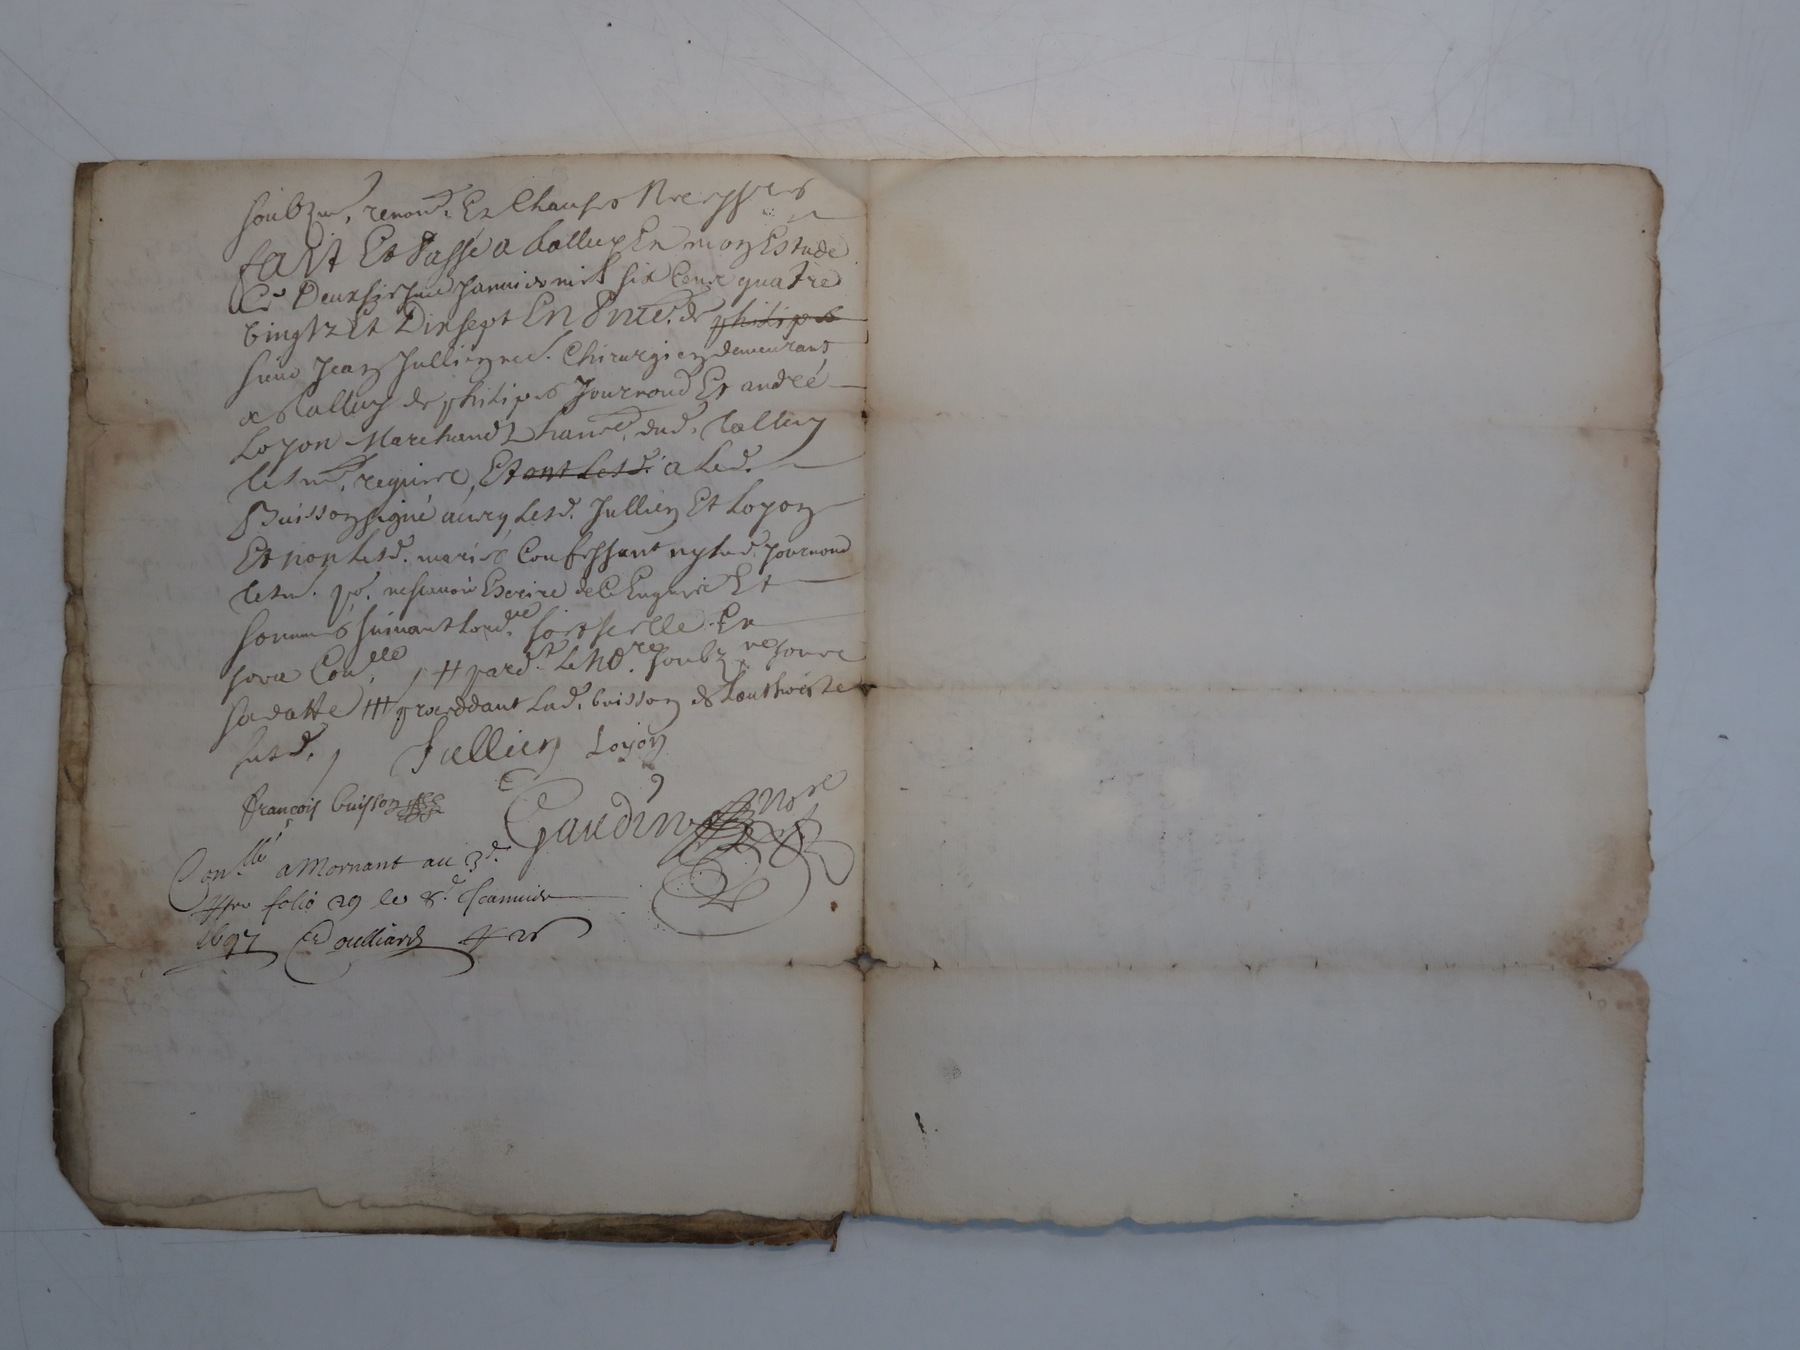 soubzon, renond. Et Clauses Necessres
fait Et Passé a talluy En mon Estude
Ce Deuxsiesme Janvier mil six Cent quatre
vingtz Et Dixsept En Pnce. de philipes
sieur Jean Jullien me. Chirurgien demeurant
a talluy de philipes Journoud Et andré
Loyon Marchandz hantd. dud. talluy
tesm. requise, Et ont Lesd. a Led.
Buisson signé avecq Lesd. Jullien Et Loyon
Et non Lesd. mariés Confessant ny led. Journoud
tesm. po. nescavoir Escrire de ce Enquis Et
sommés suivant Lord.nce soit scelle En
sera Con.llé # pard.t Le No.re soubz.ne
sadatte ## Led. buisson
lesd. Jullien Loyon
françois buisson
Gaudin Nore
Con.llé a Mornant au 3d.
folio 29 le 8d. Jeanvier
1697